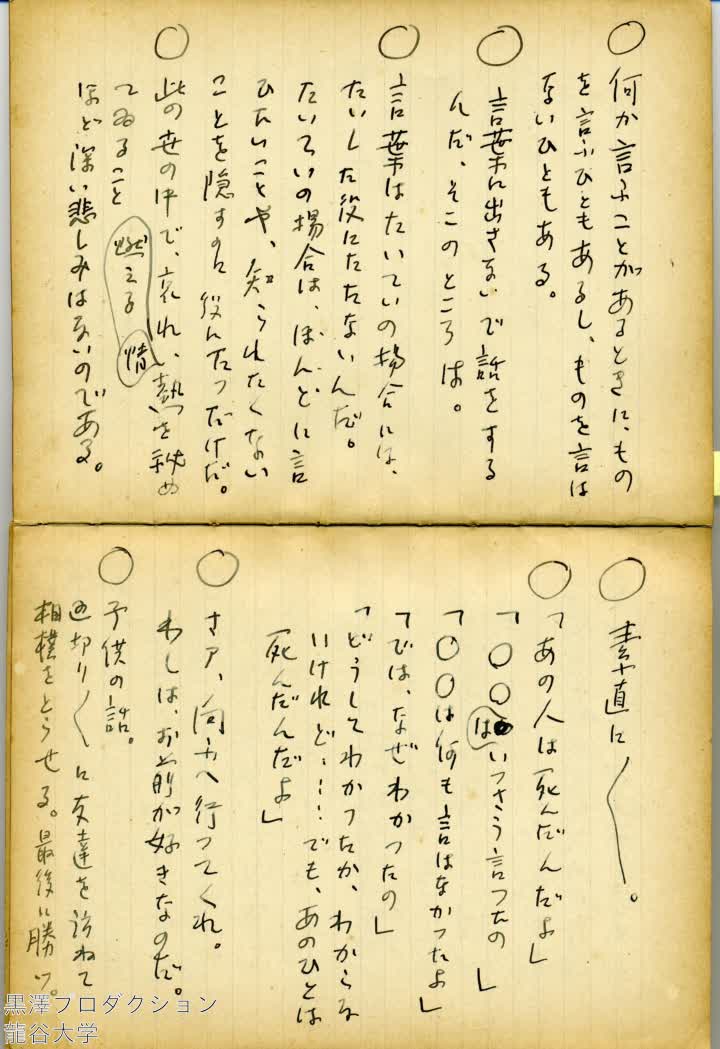 ○ 何か言ふことがあるときに、もの
を言ふひともあるし、ものを言は
ないひともある。
○ 言葉に出さないで話をする
んだ、そこのところは。
○ 言葉はたいていの場合には、
たいした役にたたないんだ。
たいていの場合は、ほんとに言
ひたいことや、知られたくない
ことを隠すのに役にたつだけだ。
○ 此の世の中で、哀れい熱つを秘め
てゐること 燃える 情
ほど深い悲しみはないのである。
○ 素直に〱。
○ 「あの人は死んだんだよ」
「○○はいつさう言つたの」
「○○は何も言はなかつたよ」
「では、なぜわかつたの」
「どうしてわかつたか、わからな
いけれど……でも、あのひとは
死んだんだよ」
○ さア、向ふへ行つてくれ。
わしは、お前が好きなのだ。
○ 子供の話。
切り〱に友達を訪ねて
相模をとらせる。最後に勝つ。
黒澤プロダクション
龍谷大学